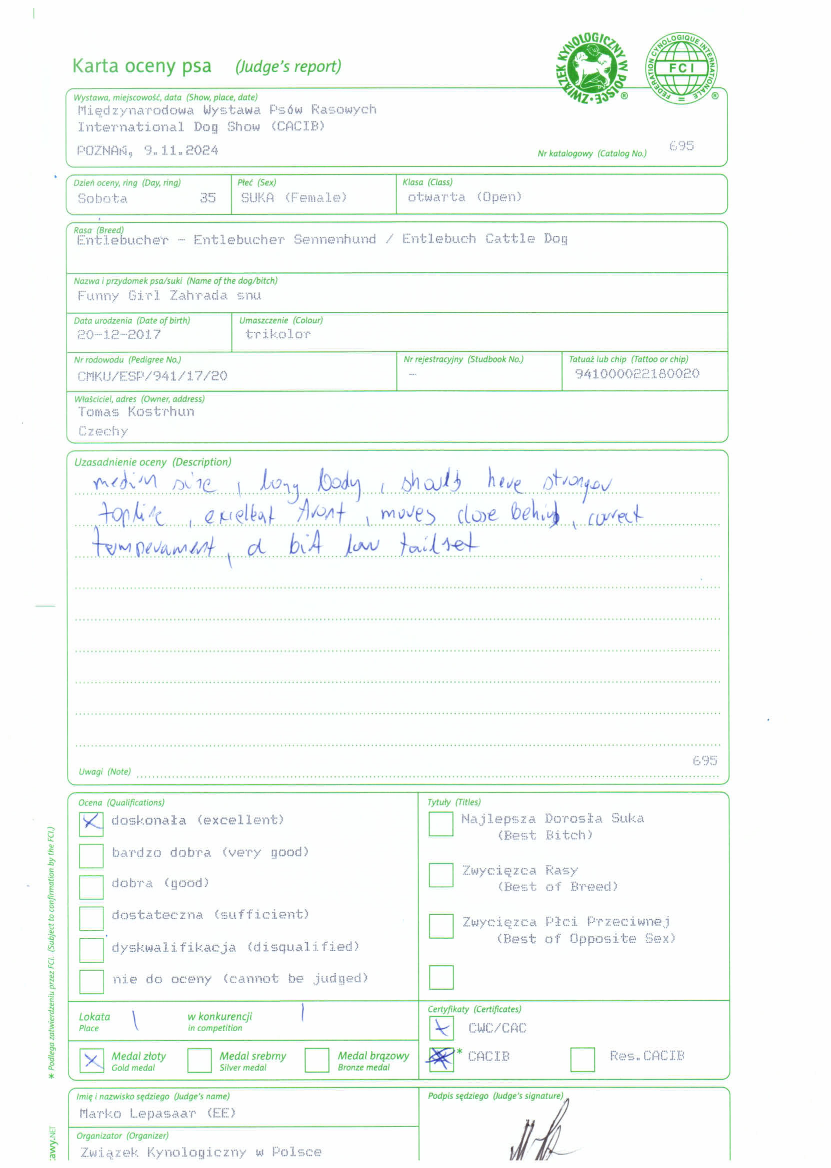 Karta oceny psa (Judge's report)
ZWIĄZEK KYNOLOGICZNY W POLSCE
FEDERATION CYNOLOGIQUE INTERNATIONALE
FCI
Wystawa, miejscowość, data (Show, place, date)
Międzynarodowa Wystawa Psów Rasowych
International Dog Show (CACIB)
POZNAŃ, 9.11.2024
Nr katalogowy (Catalog No.) 695
Dzień oceny, ring (Day, ring) Płeć (Sex) Klasa (Class)
Sobota 35 SUKA (Female) otwarta (Open)
Rasa (Breed)
Entlebucher - Entlebucher Sennenhund / Entlebuch Cattle Dog
Nazwa i przydomek psa/suki (Name of the dog/bitch)
Funny Girl Zahrada snu
Data urodzenia (Date of birth) Umaszczenie (Colour)
20-12-2017 trikolor
Nr rodowodu (Pedigree No.) Nr rejestracyjny (Studbook No.) Tatuaż lub chip (Tattoo or chip)
CMKU/ESP/941/17/20 - 941000022180020
Właściciel, adres (Owner, address)
Tomas Kostrhun
Czechy
Uzasadnienie oceny (Description)
medium size, long body, should have stronger
topline, excellent front, moves close behind, correct
temperament, a bit low tailset
695
Uwagi (Note)
Ocena (Qualifications) Tytuły (Titles)
doskonała (excellent)
bardzo dobra (very good)
dobra (good)
dostateczna (sufficient)
dyskwalifikacja (disqualified)
nie do oceny (cannot be judged)
Najlepsza Dorosła Suka
(Best Bitch)
Zwycięzca Rasy
(Best of Breed)
Zwycięzca Płci Przeciwnej
(Best of Opposite Sex)
Lokata 1 w konkurencji 1
Place in competition
Medal złoty Medal srebrny Medal brązowy
Gold medal Silver medal Bronze medal
Certyfikaty (Certificates)
CWC/CAC
* CACIB Res.CACIB
* Podlega zatwierdzeniu przez FCI. (Subject to confirmation by the FCI.)
Imię i nazwisko sędziego (Judge's name) Podpis sędziego (Judge's signature)
Marko Lepasaar (EE)
Organizator (Organizer)
Związek Kynologiczny w Polsce